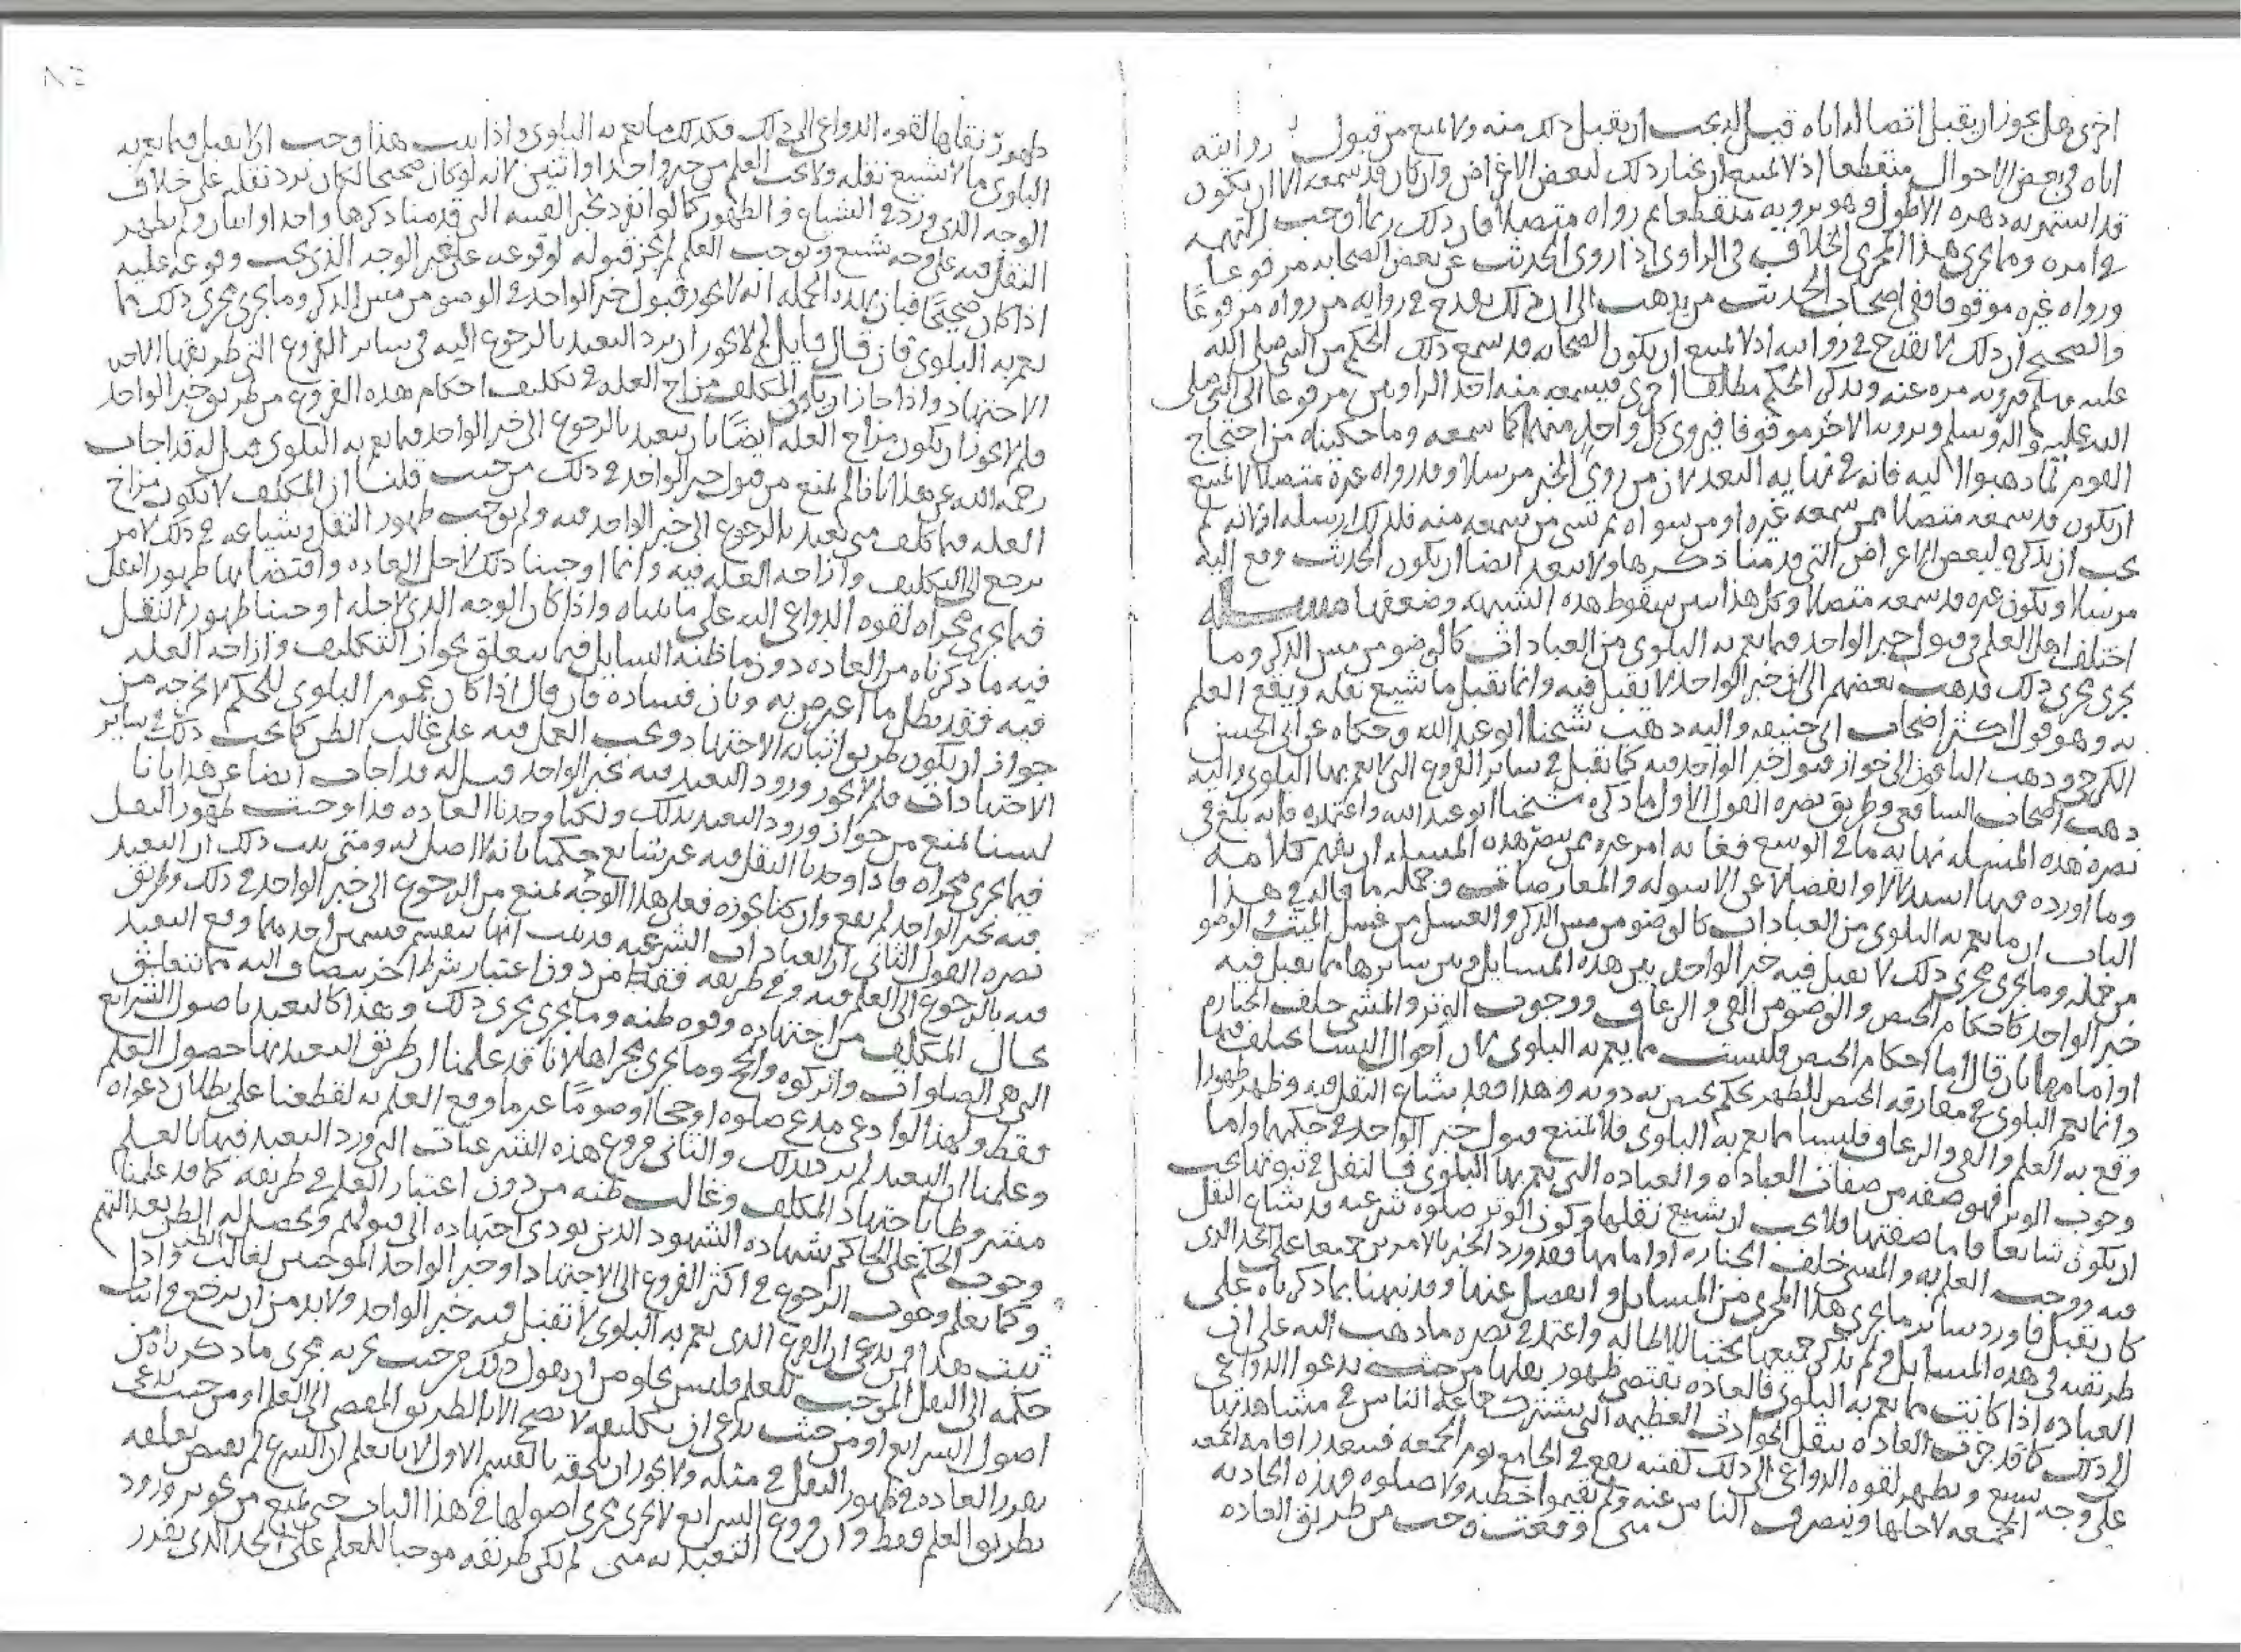 اخرى هل يجوز ان يقبل اتصاله اياه قيل له يجب ان يقبل ذلك منه ولا يمنع من قبول روايته
اياه في بعض الاحوال منقطعا اذ لا يمتنع ان يختار ذلك لبعض الاغراض وان كان قد سمعه الا ان يكون
قد استمر به دهره الاطول وهو يرويه منقطعا ثم رواه متصلا فان ذلك ربما اوجب التهمه
في امره وما يجري هذا المجرى الخلاف في الراوي اذا روى الحديث عن بعض الصحابه مرفوعا
ورواه غيره موقوفا ففي اصحاب الحديث من يذهب الى ان ذلك يقدح في روايه من رواه مرفوعا
والصحيح ان ذلك لا يقدح في روايته اذ لا يمتنع ان يكون الصحابه قد سمع ذلك الحكم من النبي صلى الله
عليه وسلم فيرويه مره عنه ويذكر الحكم مطلقا اخرى فيسمعه منه احد الراويين مرفوعا الى النبي صلى
الله عليه واله وسلم ويرويه الاخر موقوفا فيروي كل واحد منهما كما سمعه وما حكيناه من احتجاج
القوم لما ذهبوا اليه فانه في نهايه البعد لان من روى الخبر مرسلا وقد رواه غيره متصلا لا يمتنع
ان يكون قد سمعه متصلا ممن سمعه غيره او من سواه ثم نسي من سمعه منه فلذلك ارسله او لانه لم
يجب ان يذكره لبعض الاغراض التي قدمنا ذكرها ولا يبعد ايضا ان يكون الحديث وقع اليه
مرسلا ويكون غيره قد سمعه متصلا وكل هذا يبين سقوط هذه الشبهه وضعفها مسئله
اختلف اهل العلم في قبول خبر الواحد فيما يعم به البلوى من العبادات كالوضو من مس الذكر وما
يجري مجرى ذلك فذهب بعضهم الى ان خبر الواحد لا يقبل فيه وانما يقبل ما شيع نقله ويقع العلم
به وهو قول اكثر اصحاب ابي حنيفه واليه ذهب شيخنا ابو عبد الله وحكاه عن ابي الحسن
الكرخي وذهب الباقون الى جواز قبول خبر الواحد فيه كما يقبل في سائر الفروع التي لا يعم بها البلوى واليه
ذهب اصحاب الشافعي وطريق نصره القول الاول ما ذكره شيخنا ابو عبد الله واعتمده فانه بلغ في
نصره هذه المسئله نهايه ما في الوسع فغايه امر غيره ممن ينصر هذه المسئله ان يفهم كلامه
وما اورده فيها استدلالا وانفصالا عن الاسوله والمعارضات وجمله ما قاله في هذا
الباب ان ما يعم به البلوى من العبادات كالوضو من مس الذكر والغسل من غسل الميت والوضو
من حمله وما يجري مجرى ذلك لا يقبل فيه خبر الواحد بين هذه المسايل وبين سايرها مما يقبل فيه
خبر الواحد كاحكام الحيض والوضو من القي والرعاف ووجوب الوتر والمشي خلف الجنازه
او امامها بان قال اما احكام الحيض فليست مما يعم به البلوى لان احوال النسا تختلف فيها
وانما يعم البلوى في مفارقه الحيض للطهر بحكم يختص به دونه وهذا فقد شاع النقل فيه وظهر ظهورا
وقع به العلم والقي والرعاف فليسا مما يعم به البلوى فلا يمتنع قبول خبر الواحد في حكمهما واما
وجوب الوتر فهو صفه من صفات العباده والعباده التي يعم بها البلوى فالنقل في ثبوتها يجب
ان يكون شايعا فاما صفتها فلا يجب ان شيع نقلها وكون الوتر صلوه شرعيه قد شاع النقل
فيه ووجب العلم به والمشي خلف الجنازه او امامها فقد ورد الخبر بالامرين جميعا على الحد الذي
كان يقبل فاورد ساير ما يجري هذا المجرى من المسايل وانفصل عنها وقد نبهنا بما ذكرناه على
طريقته في هذه المسايل ولم نذكر جميعها تجنبا للاطاله واعتمد في نصره ما ذهب اليه على ان
العباده اذا كانت مما يعم به البلوى فالعاده تقتضي ظهور نقلها من حيث يدعو الدواعي
الى ذلك كما قد جرت العاده بنقل الحوادث العظيمه التي يشترك جماعه الناس في مشاهدتها
على وجه يشيع ويظهر لقوه الدواعي الى ذلك كفتنه يقع في الجامع يوم الجمعه فيتعذر اقامه الجمعه
الجمعه لاجلها وينصرف الناس عنه ولم يقيموا خطبه ولا صلوه فهذه الحادثه متى وقعت وجب من طريق العاده
ظهور نقلها لقوه الدواعي الى ذلك فكذلك ما يعم به البلوى واذا ثبت هذا وجب الا يقبل فيما يعم به
البلوى ما لا يشيع نقله ولا يجب العلم من خبر واحد او اثنين لانه لو كان صحيحا لكان يرد نقله على خلاف
الوجه الذي ورد في الشياع والظهور كما لو انفرد بخبر الفتنه التي قدمنا ذكرها واحد او اثنان ولم يظهر
النقل فيه على وجه يشيع ويوجب العلم لم يجز قبوله لوقوعه على غير الوجه الذي يجب وقوعه عليه
اذا كان صحيحا فبان بهذه الجمله انه لا يجوز قبول خبر الواحد في الوضو من مس الذكر وما يجري مجرى ذلك مما
يعم به البلوى فان قال قايل لم لا يجوز ان يرد التعبد بالرجوع اليه في ساير الفروع التي طريقها
الاجتهاد واذا جاز ان يكون المكلف مزاح العله في تكليف احكام هذه الفروع من طريق خبر الواحد
فلم لا يجوز ان يكون مزاح العله ايضا بان يتعبد بالرجوع الى خبر الواحد فيما يعم به البلوى قيل له قد اجاب
رحمه الله عن هذا بانا لم نمنع من قبول خبر الواحد في ذلك من حيث قلنا ان المكلف لا يكون مزاح
العله فيما كلف متى تعبد بالرجوع الى خبر الواحد فيه ولم نوجب ظهور النقل وشياعه في ذلك لامر
يرجع الى التكليف وازاحه العله فيه وانما اوجبنا ذلك لاجل العاده واقتضايها ظهور النقل
فيما يجري مجراه لقوه الدواعي اليه على ما بيناه واذا كان الوجه الذي لاجله اوجبنا ظهور النقل
فيه ما ذكرناه من العاده دون ما ظنه السايل فيما يتعلق بجواز التكليف وازاحه العله
فيه فقد بطل ما اعترض به وبان فساده فان قال اذا كان عموم البلوى للحكم لا يخرجه من
جواز ان يكون طريق اثباته الاجتهاد ويجب العمل فيه على غالب الظن كما يجب ذلك في ساير
الاجتهادات فلم لا يجوز ورود التعبد فيه بخبر الواحد قيل له قد اجاب ايضا عن هذا بانا
لسنا نمنع من جواز ورود التعبد بذلك ولكنا وجدنا العاده قد اوجبت ظهور النقل
فيما يجري مجراه فاذا وجدنا النقل فيه غير شايع حكمنا بانه لا اصل له ومتى ثبت ذلك ان التعبد
فيه بخبر الواحد لم يقع وان كنا نجوزه فعلى هذا الوجه نمنع من الرجوع الى خبر الواحد في ذلك وطريق
نصره القول الثاني ان العبادات الشرعيه قد ثبت انها تنقسم قسمين احدهما وقع التعبد
فيه بالرجوع الى العلم فيه وفي طريقه فقط من دون اعتبار شرط اخر ينضاف اليه مما يتعلق
بحال المكلف من اجتهاده وقوه ظنه وما يجري مجرى ذلك وهذا كالتعبد باصول الشرايع
التي هي الصلوات والزكوه والحج وما يجري مجراها لانا قد علمنا ان طريق التعبد بها حصول العلم
فقط ولهذا لو ادعى مدع صلوه او حجا او صوما غير ما وقع العلم به لقطعنا على بطلان دعواه
وعلمنا ان التعبد لم يرد بذلك والثاني فروع هذه الشرعيات التي ورد التعبد فيها بالعلم
مشروطا باجتهاد المكلف وغالب ظنه من دون اعتبار العلم في طريقه كما قد علمنا
وجوب الحكم على الحاكم بشهاده الشهود الذين يودي اجتهاده الى قبولهم ويحصل له الظن
وكما يعلم وجوب الرجوع في اكثر الفروع الى الاجتهاد او خبر الواحد الموجبين لغالب الظن واذا
ثبت هذا فمن يدعي ان الفرع الذي يعم به البلوى لا يقبل فيه خبر الواحد ولا بد من ان يرجع في اثبات
حكمه الى النقل الموجب للعلم فليس يخلو من ان يقول ذلك من حيث يجريه مجرى ما ذكرناه من
اصول الشرايع او من حيث يدعي ان تكليفه لا يصح الا بالطريق المفضي الى العلم او من حيث يدعي
تفرد العاده في ظهور النقل في مثله ولا يجوز ان يلحقه بالقسم الاول لانا نعلم ان الشرع لم يقتض تعلقه
بطريق العلم فقط وان فروع الشرايع لا يجري مجرى اصولها في هذا الباب حتى يمنع من تجويز ورود
التعبد به متى لم يكن طريقه موجبا للعلم على الحد الذي يقدر